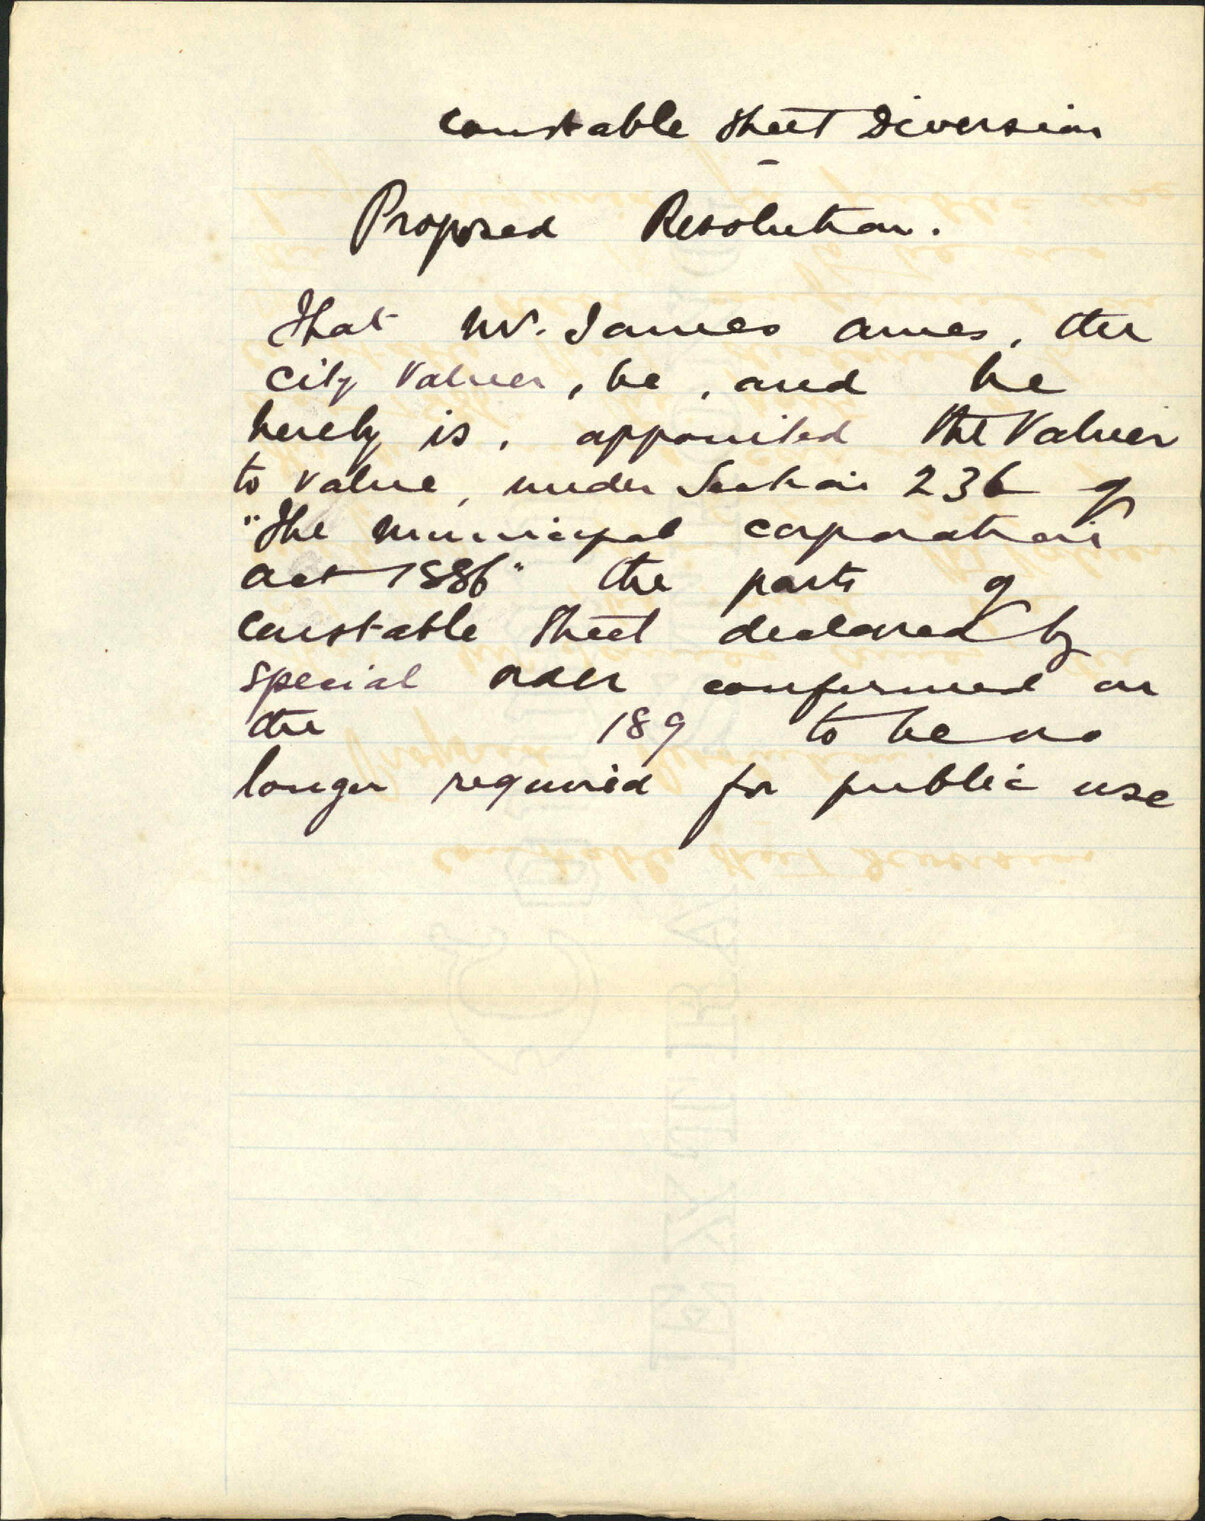 Constable Street Diversion
Proposed Resolution.
That Mr. James Ames, the
City Valuer, be, and he
hereby is, appointed the Valuer
to value, under Section 236 of
"The Municipal Corporations
Act 1886" the parts of
Constable Street declared by
special order confirmed on
the 189 to be no
longer required for public use